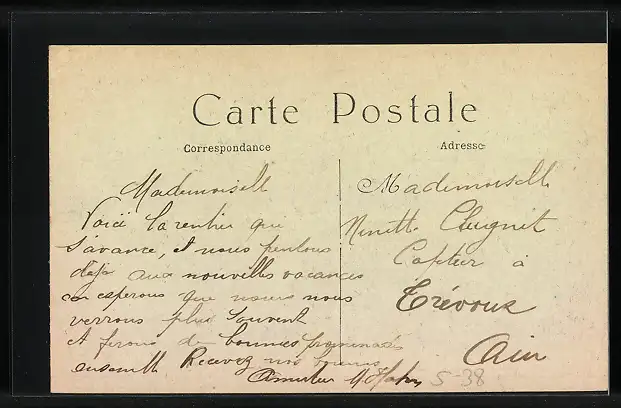 Carte Postale
Correspondance
Adresse
Mademoiselle
Voici la rentrée qui
s'avance, et nous pensons
déjà aux nouvelles vacances
car esperons que nous nous
verrons plus souvent
et ferons de bonnes promenades
ensemble Recevez nos bonnes
Amitiés
Mademoiselle
Ninette Clugnet
à
Trévoux
Ain
5-38